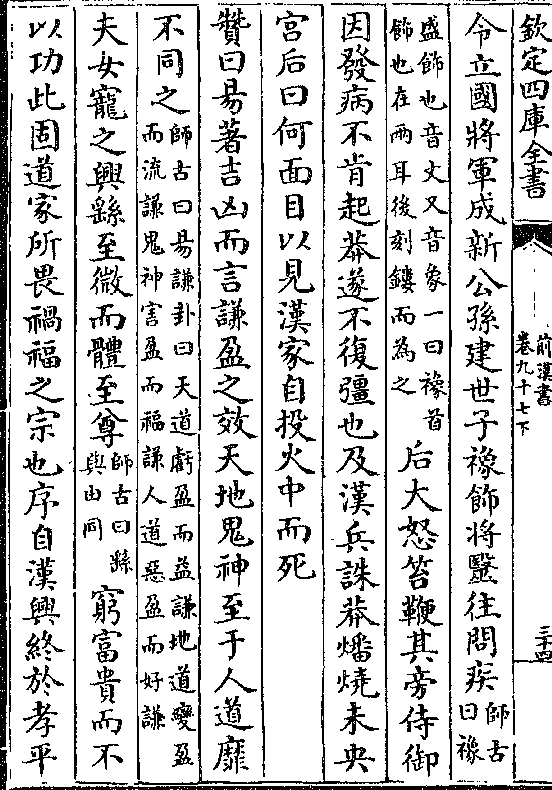 欽定四庫全書
前漢書
卷九十七下
三十四
令立國將軍成新公孫建世子襐飾將毉往問疾師古曰襐
盛飾也音丈又音象一曰襐首飾也在兩耳後刻鏤而為之后大怒笞鞭其旁侍御
因發病不肯起莽遂不復彊也及漢兵誅莽燔燒未央
宫后曰何面目以見漢家自投火中而死
贊曰易著吉凶而言謙盈之效天地鬼神至于人道靡
不同之師古曰易謙卦曰天道虧盈而益謙地道變盈而流謙鬼神害盈而福謙人道惡盈而好謙
夫女寵之興繇至微而體至尊師古曰繇與由同窮富貴而不
以功此固道家所畏禍福之宗也序自漢興終於孝平